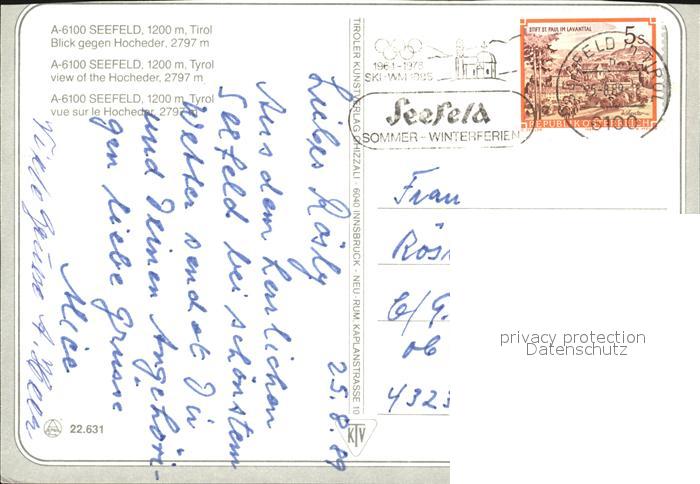 A-6100 SEEFELD, 1200 m, Tirol
Blick gegen Hocheder, 2797 m
A-6100 SEEFELD, 1200 m, Tyrol
view of the Hocheder, 2797 m
A-6100 SEEFELD, 1200 m, Tyrol
vue sur le Hocheder, 2797 m
25.8.89
Liebes Rösly
Aus dem herrlichen
Seefeld bei schönstem
Wetter sendet Dir
und Deinen Angehöri-
gen liebe Grüsse
Alice
Viele Grüsse A.
22.631
TIROLER KUNSTVERLAG CHIZZALI · 6040 INNSBRUCK - NEU-RUM, KAPLANSTRASSE 10
KTV
1964-1976
SKI-WM 1985
Seefeld
SOMMER - WINTERFERIEN
STIFT ST. PAUL IM LAVANTTAL
5s
REPUBLIK ÖSTERREICH
SEEFELD TIROL
6100
Frau
Rös
C/G.
ob
4323
privacy protection
Datenschutz